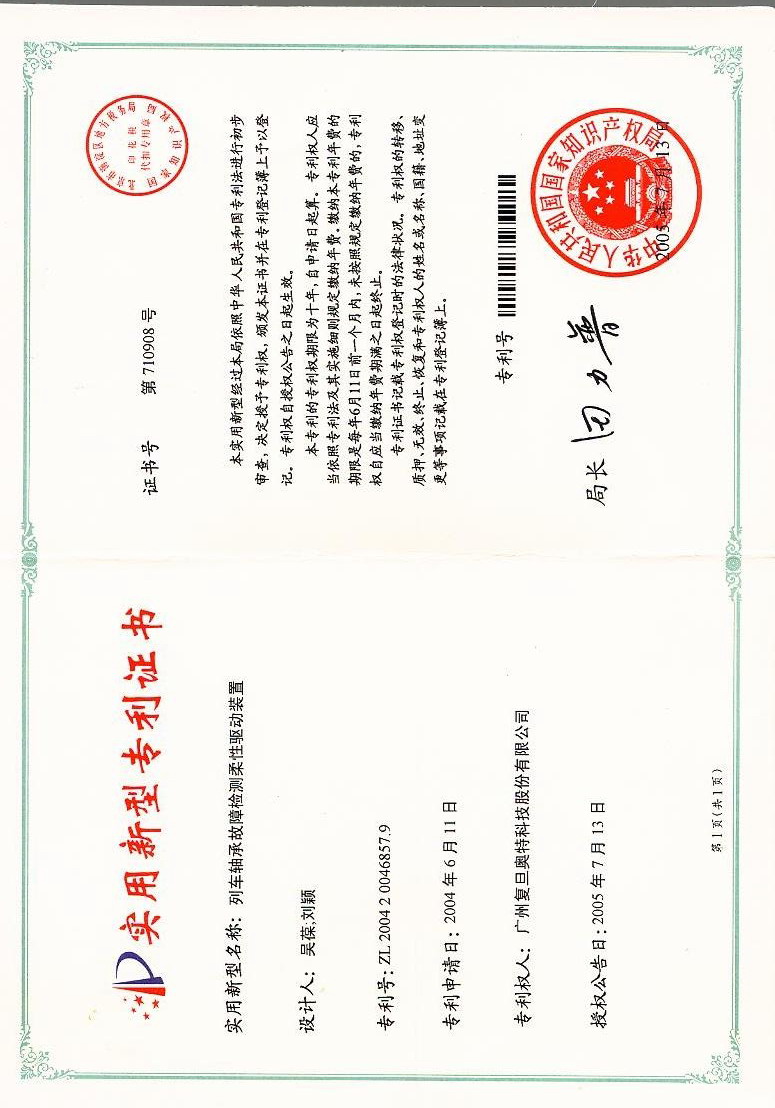 实用新型专利证书
实用新型名称：列车轴承故障检测柔性驱动装置
设计人：吴葆;刘颖
专利号：ZL 2004 2 0046857.9
专利申请日：2004年6月11日
专利权人：广州复旦奥特科技股份有限公司
授权公告日：2005年7月13日
第1页(共1页)
证书号 第710908号
国家知识产权局
印花税
代扣专用章
本实用新型经过本局依照中华人民共和国专利法进行初步
审查，决定授予专利权，颁发本证书并在专利登记簿上予以登
记。专利权自授权公告之日起生效。
本专利的专利权期限为十年，自申请日起算。专利权人应
当依照专利法及其实施细则规定缴纳年费。缴纳本专利年费的
期限是每年6月11日前一个月内，未按照规定缴纳年费的，专利
权自应当缴纳年费期满之日起终止。
专利证书记载专利权登记时的法律状况。专利权的转移、
质押、无效、终止、恢复和专利权人的姓名或名称、国籍、地址变
更等事项记载在专利登记簿上。
专利号
局长 田力普
中华人民共和国国家知识产权局
2005年7月13日